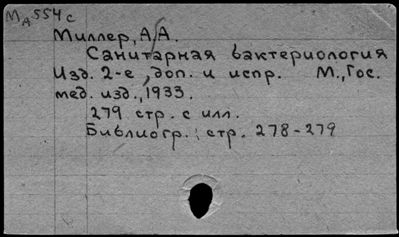 МА554с
Миллер, А.А.
Санитарная бактериология
Изд. 2-е, доп. и испр. М., Гос.
мед. изд., 1933.
279 стр. с илл.
Библиогр.: стр. 278-279